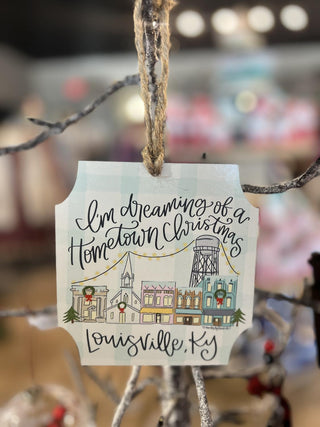 I'm dreaming of a
Hometown Christmas
Louisville, KY